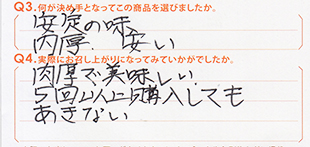 Q3.何が決め手となってこの商品を選びましたか。
安定の味
肉厚. 安い
Q4.実際にお召し上がりになってみていかがでしたか。
肉厚で美味しい
5回以上購入しても
あきない